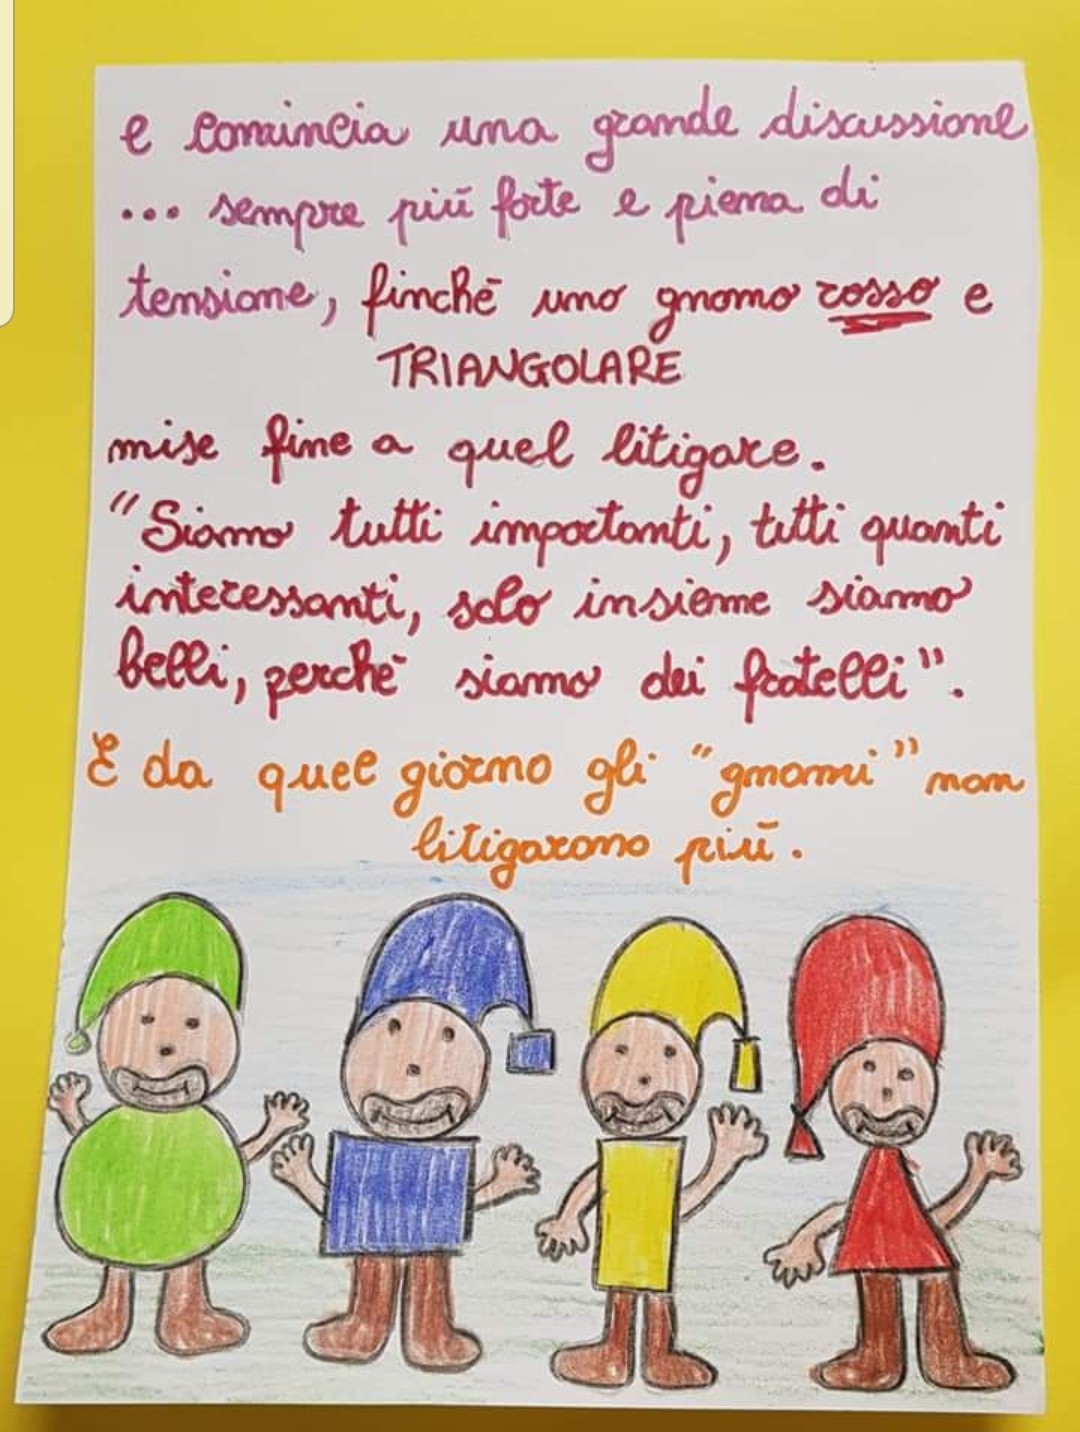 e comincia una grande discussione
... sempre più forte e piena di
tensione, finchè uno gnomo rosso e
TRIANGOLARE
mise fine a quel litigare.
"Siamo tutti importanti, tutti quanti
interessanti, solo insieme siamo
belli, perchè siamo dei fratelli".
E da quel giorno gli "gnomi" non
litigarono più.